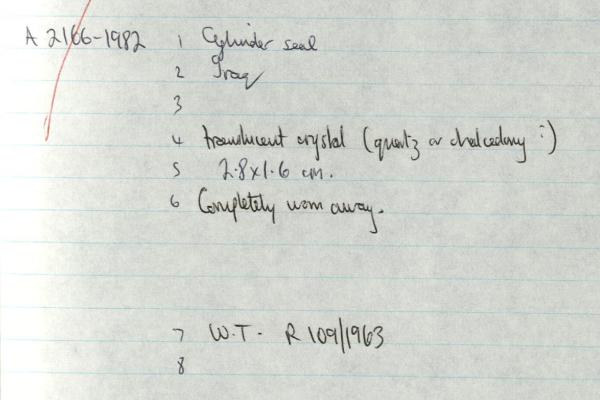 A 2166-1982 1 Cylinder seal
2 Iraq
3
4 translucent crystal (quartz or chalcedony ?)
5 2.8x1.6 cm.
6 Completely worn away.
7 W.T. - R 109/1963
8